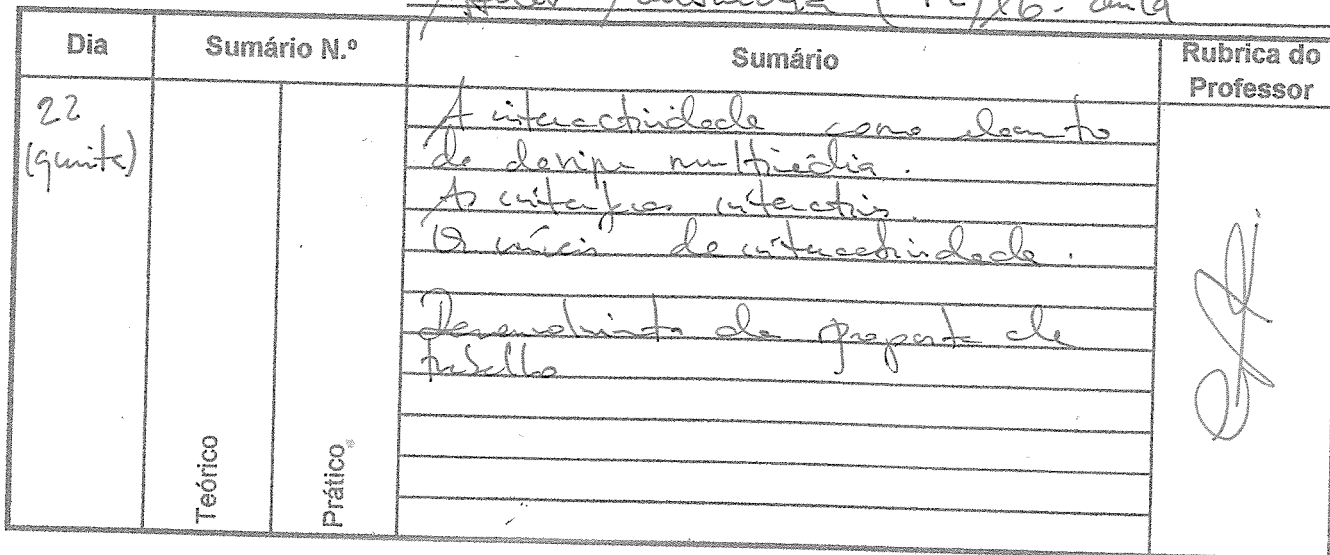 Dia
Sumário N.º
Sumário
Rubrica do
Professor
22
(quinta)
A interactividade como elemento
de design multimédia.
As interfaces interactivas.
Os níveis de interactividade.
Desenvolvimento da proposta de
trabalho
Teórico
Prático